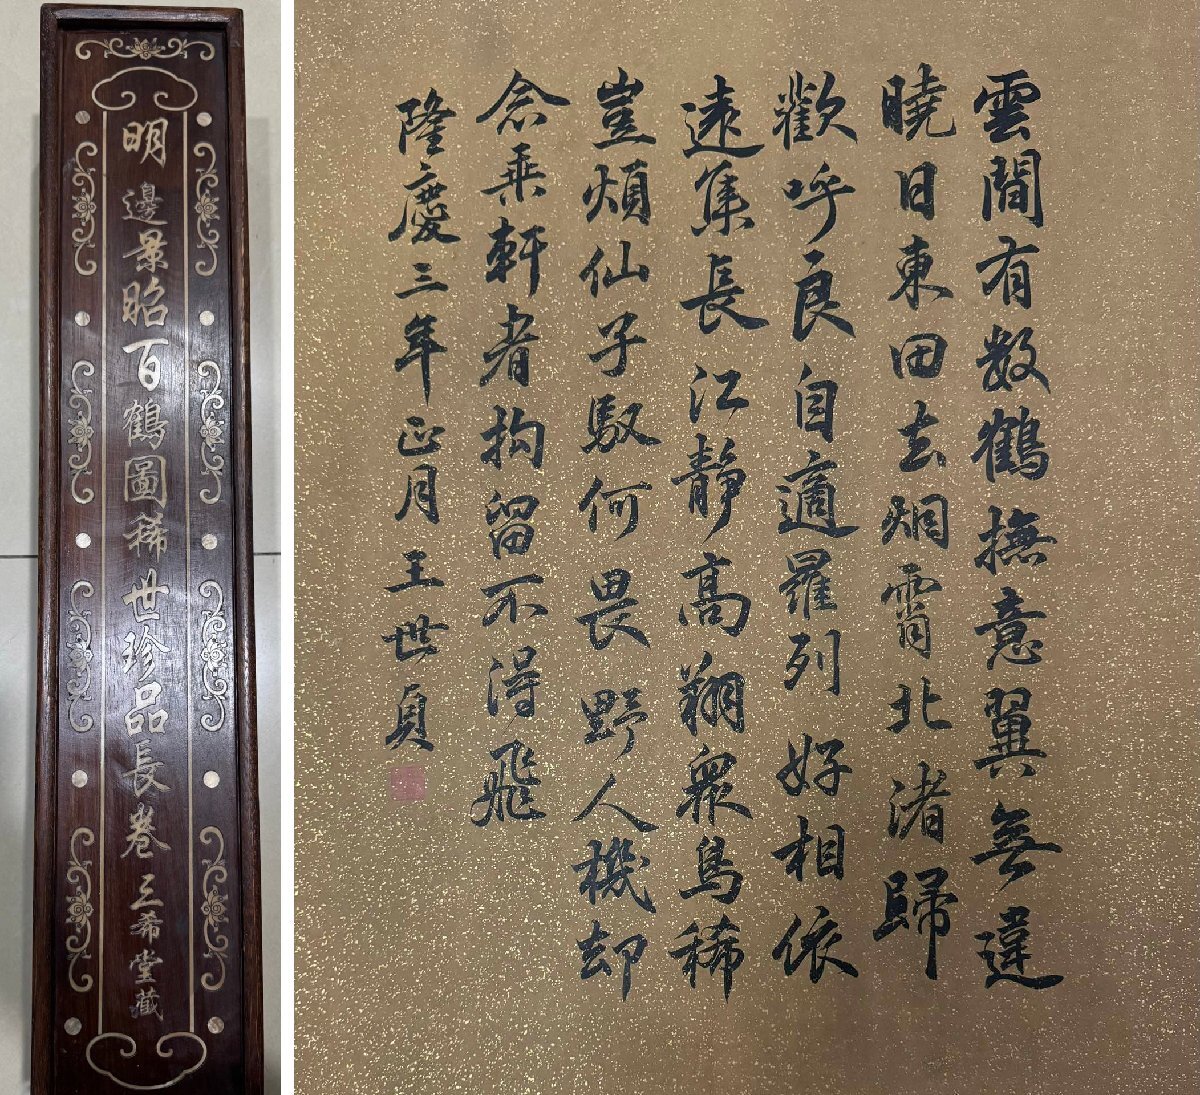 明邊景昭百鶴圖稀世珍品長卷三希堂藏
雲間有數鶴撫意翼無違
曉日東田去烟霄北渚歸
歡呼良自適羅列好相依
遠集長江靜高翔衆鳥稀
豈煩仙子馭何畏野人機却
念乘軒者拘留不得飛
隆慶三年正月王世貞